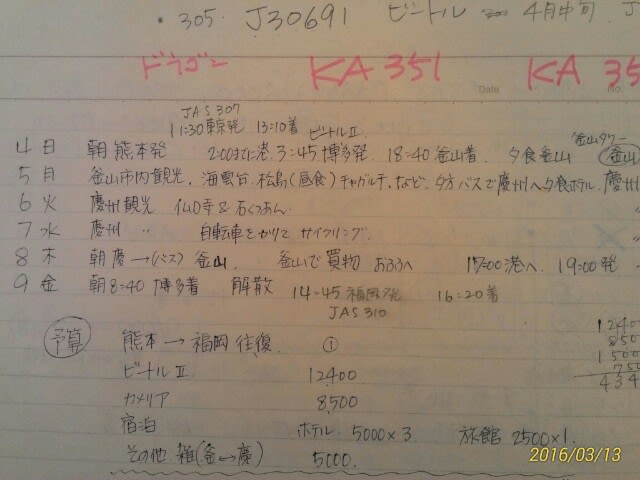 ・305. J30691 ビートル 4月中旬 J
ドラゴン KA 351 KA 35
Date No.
JAS 307
11:30東京発 13:10着 ビートルⅡ 釜山タワー
4 日 朝 熊本発 2:00までに港. 3:45 博多発 18:40 釜山着 夕食釜山 釜山
5 月 釜山市内観光. 海雲台. 松島(昼食)チャガルチ. など. 夕方 バスで慶州へ夕食ホテル. 慶州
6 火 慶州観光 仏口寺 & 石くつあん.
7 水 慶州 〃 自転車をかりて サイクリング.
8 木 朝 慶→(バス) 釜山. 釜山で買物 おふろへ 17:00 港へ. 19:00 発
9 金 朝8:40 博多着 解散 14-45 福岡発 16:20着
JAS 310
予算 熊本→福岡 往復. ① 1240
850
ビートルⅡ 12400 1500
750
カメリア 8,500 434
宿泊 ホテル 5000×3 旅館 2500×1.
その他. 雑(釜→慶) 5000.
2016/03/13